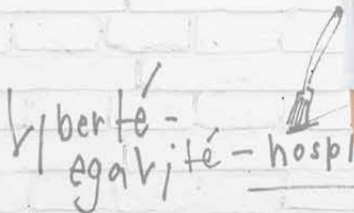 Liberté -
egalité - hospi